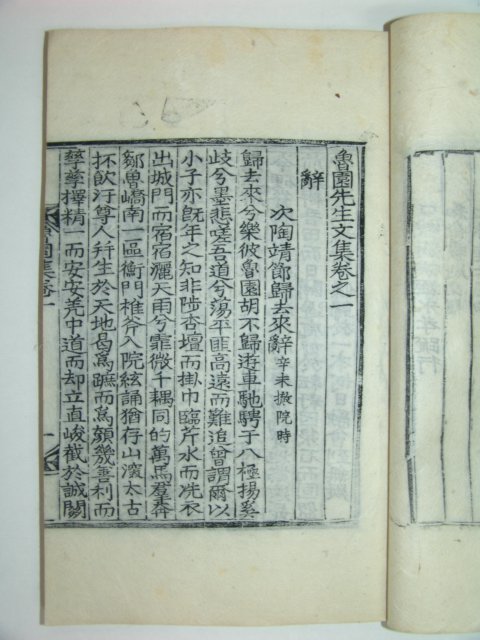 魯園先生文集卷之一
辭
次陶靖節歸去來辭辛未撤院時
歸去來兮樂彼魯園胡不歸遊車馳騁于八極揚奚
岐兮墨悲嗟吾道兮蕩平匪高遠而難追曾謂爾以
小子亦旣年之知非陟杏壇而掛巾臨斧水而洗衣
出城門而宿宿灑天雨兮霏微千耦同的萬馬羣奔
鄒魯嶠南一區衡門椎斧入院絃誦猶存山濱太古
杯飮汙尊人幷生於天地曷爲蹠而爲顔幾善利而
孶孶擇精一而安安羌中道而却立直峻截於誠關
魯園集卷一
一